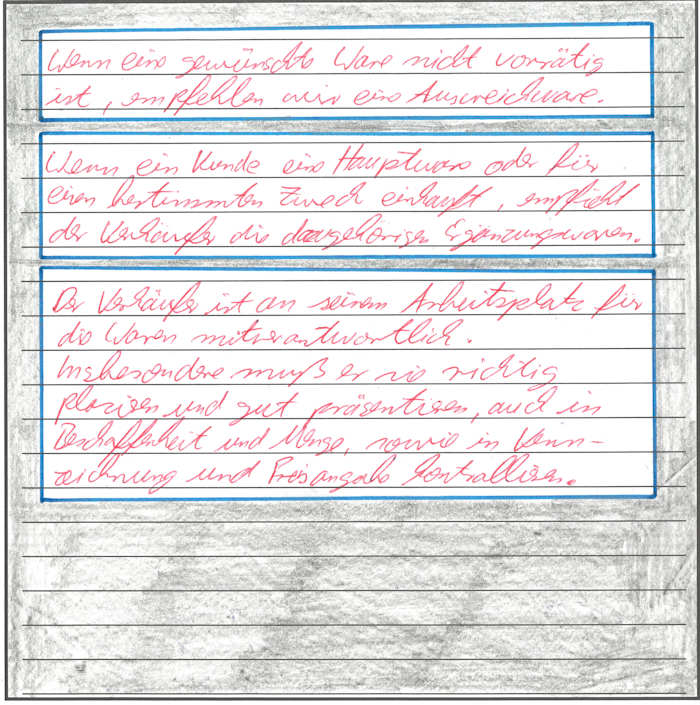 Wenn eine gewünschte Ware nicht vorrätig
ist, empfehlen wir eine Ausweichware.
Wenn ein Kunde eine Hauptware oder für
einen bestimmten Zweck einkauft, empfiehlt
der Verkäufer die dazugehörigen Ergänzungswaren.
Der Verkäufer ist an seinem Arbeitsplatz für
die Waren mitverantwortlich.
Insbesondere muß er sie richtig
plazieren und gut präsentieren, auch in
Beschaffenheit und Menge, sowie in Kenn-
zeichnung und Preisangabe kontrollieren.